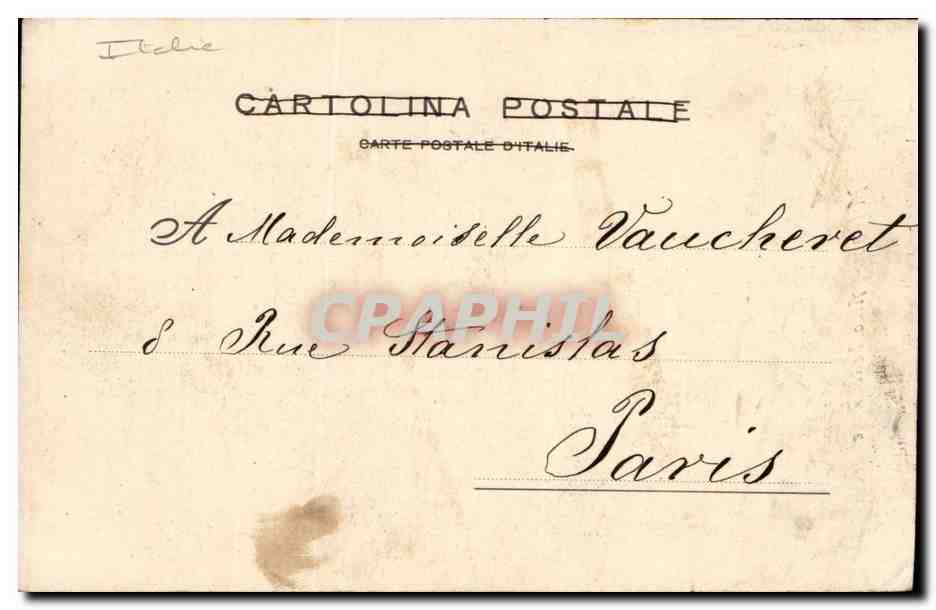 Italie
CARTOLINA POSTALE
CARTE POSTALE D'ITALIE.
A Mademoiselle Vaucheret
CPAPHIL
8 Rue Stanislas
Paris